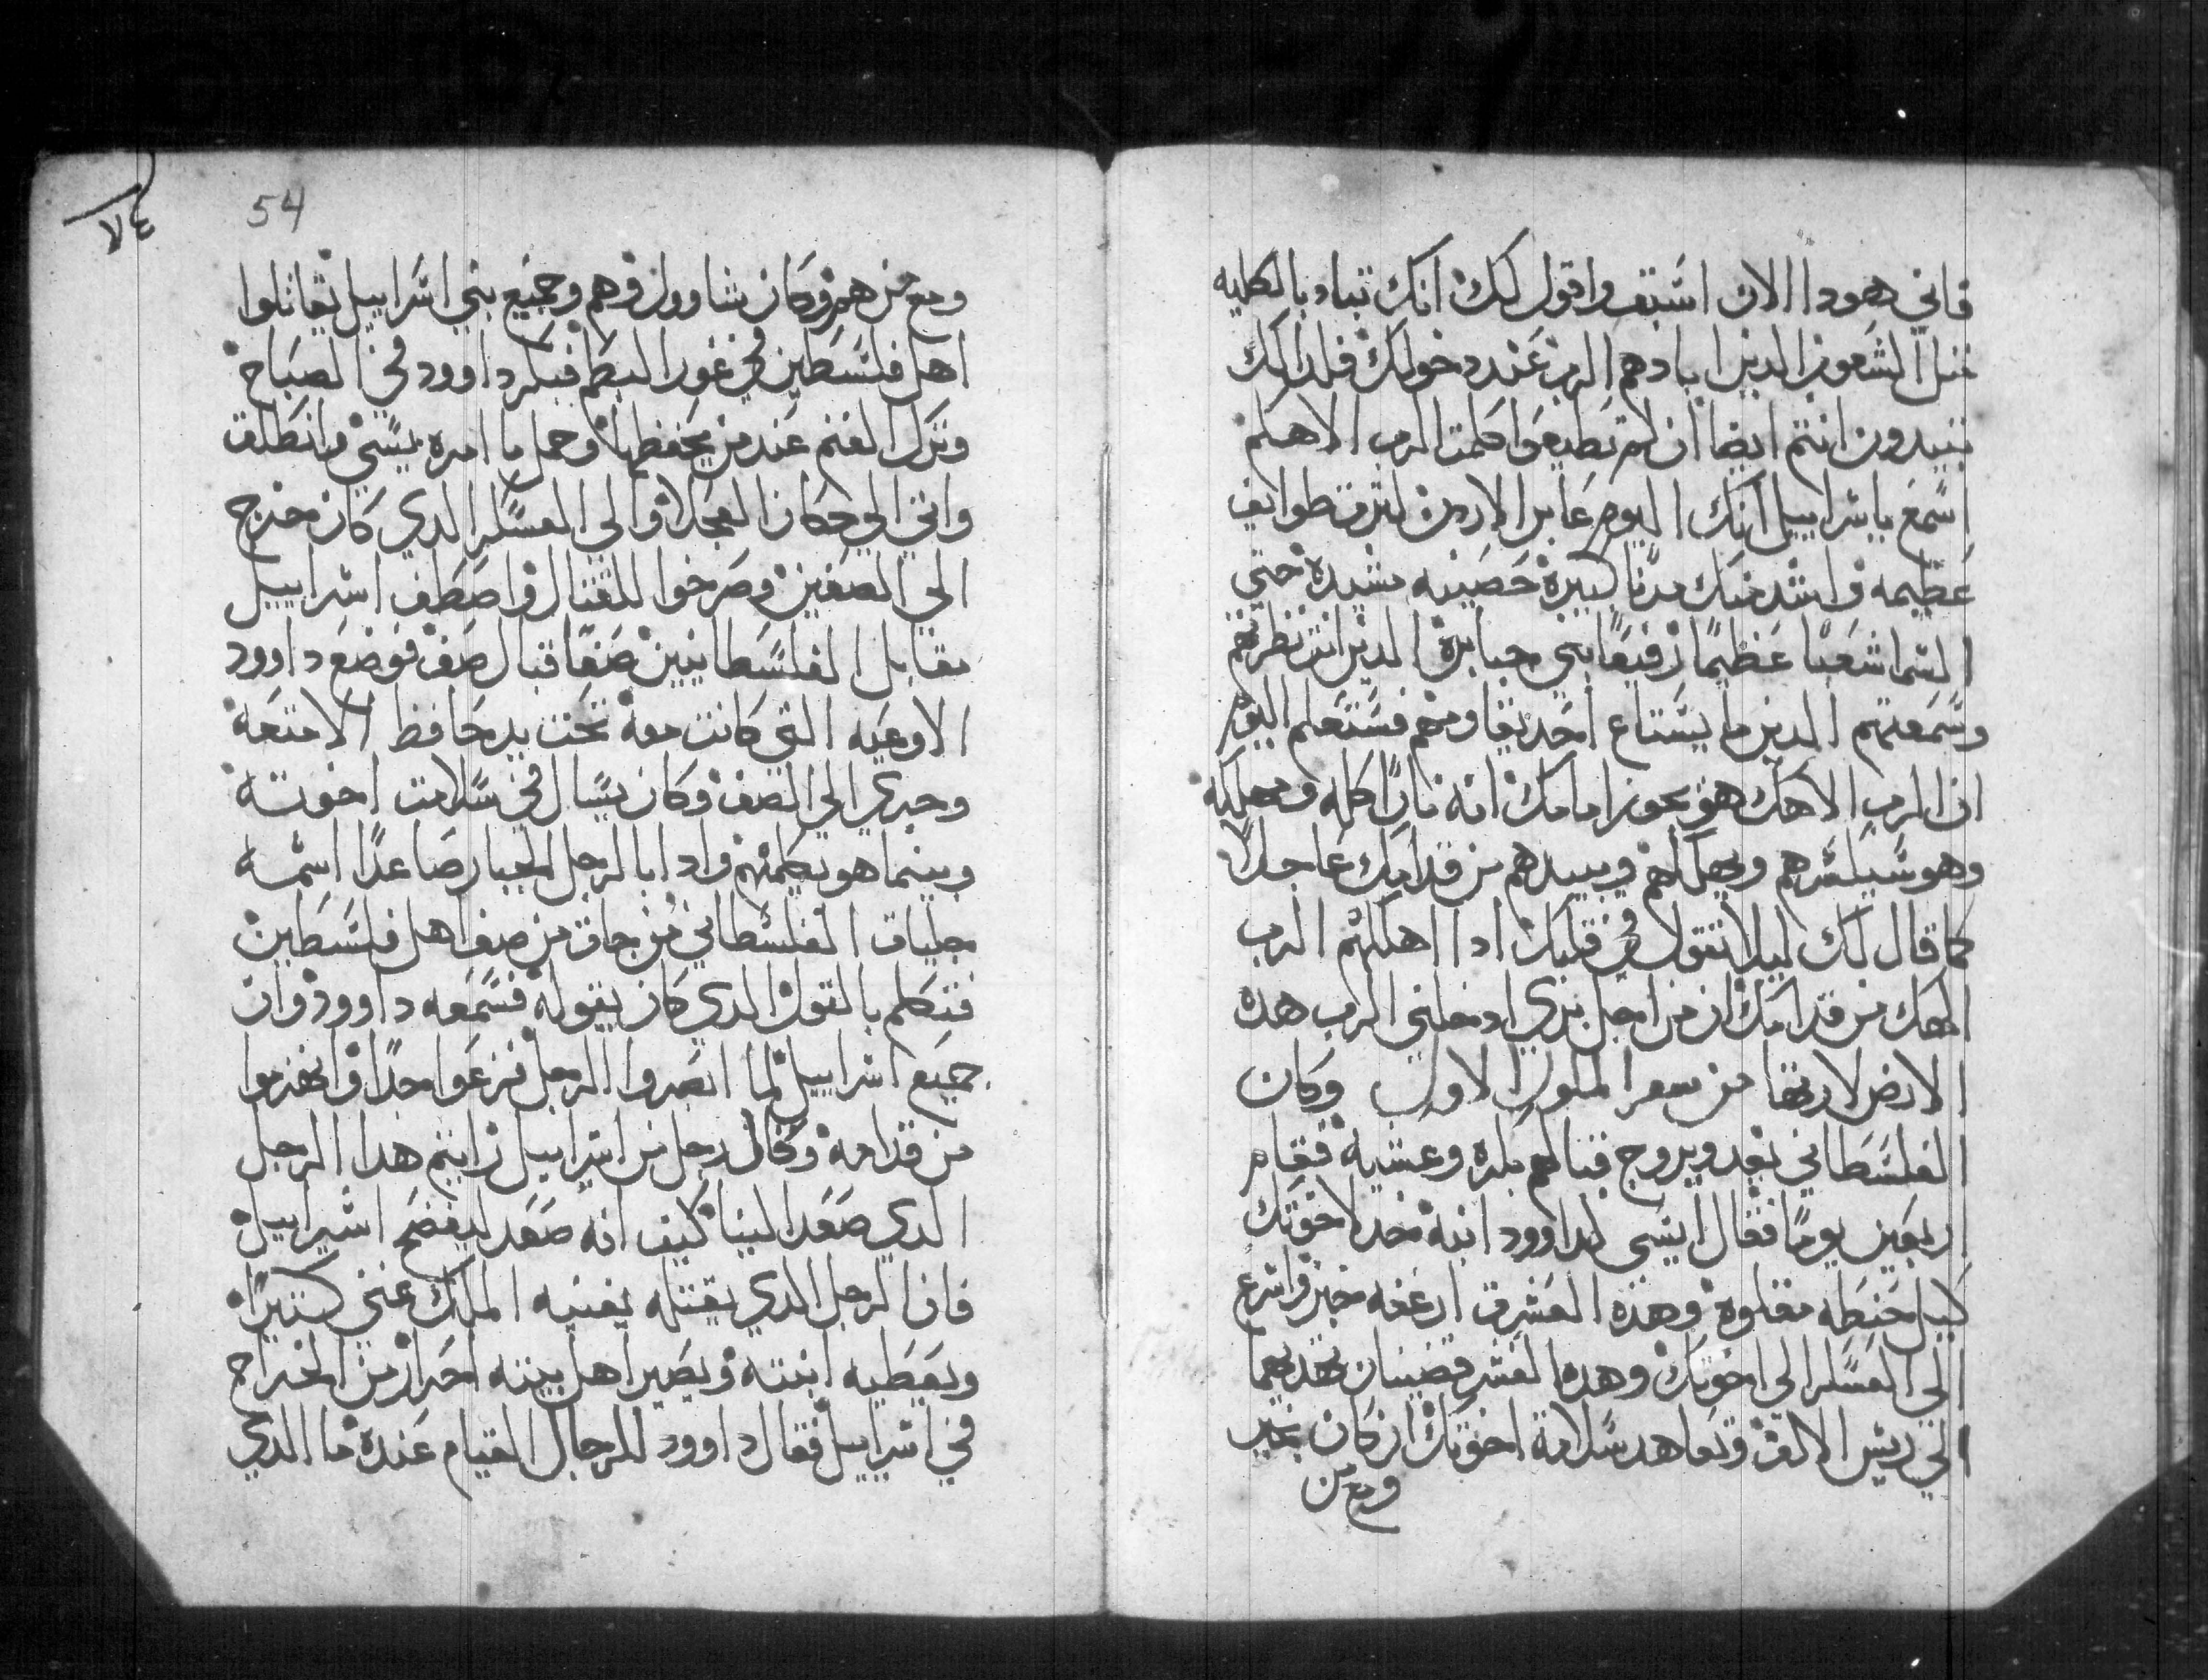 فاني هودا الان اسبق واقول لك انك تباد بالكليه
مثل الشعوب الدين ابادهم الرب عند دخولك فلدالك
تبيدون انتم ايضا ان لم تطيعوا كلمت الرب الاهكم
اسمع ياسراييل انك اليوم عابر الاردن لترث طوايف
عظيمه واشد منك مدنا كبيرة حصينه مشيدة حتي
السما شعبا عظيما رفيعا بني جبابرة الدين انت نظرتهم
وسمعتهم الدين ما يستتاع احد يقاومهم فستعلم اليوم
ان الرب الاهك هو يجوز امامك انه نارا اكله ومهلكه
وهو سيكسرهم ويهلكهم ويبيدهم من قدامك عاجلا
كما قال لك ليلا تقول في قلبك ادا اهلكهم الرب
الهك من قدامك ان من اجل بري ادخلني الرب هده
الارض لارثها من سفر الملوك الاول وكان
الفلسطاني يغد ويروج قبالهم بكره وعشيه فقام
اربعين يوما فقال ايسى لداوود ابنه خد لاخوتك
كيل حنطه مقلوه وهذه العشرة ارغفه خبز واسرع
الي العسكر الى اخوتك وهده العشر قضبنان تهديهما
الي ريس الالف وتعاهد سلامة اخوتك ان كان بخير
ومع من
54
٧٤
ومع من هم وكان شاوول وهم وجميع بني اسراييل يقاتلوا
اهل فلسطين في غور البطم فبكر داوود في الصباح
وترك الغنم عند من يحفظها وحمل ما امره يسي وانطلق
واتي الي حكان العجلا والى العسكر الدي كان مخرج
الي الصفين وصرخوا للقتال واصطف اسراييل
مقابل الفلسطانيين صفا قبال صف فوضع داوود
الاوعيه التي كانت معه تحت يد حافظ الامتعه
وجري الي الصف وكان يسال في سلامت اخوته
وبينما هو يكلمهم وادا بالرجل الجبار صاعدا اسمه
جليات الفلسطاني من جات من صف اهل فلسطين
فتكلم بالقول الدي كان يقوله فسمعه داوود وان
جميع اسراييل لما ابصروا الرجل فزعوا جدا وانهزموا
من قدامه وقال رجل من اسراييل رايتم هدا الرجل
الدي صعد الينا كيف انه صعد ليفضح اسراييل
فان الرجل الدي يقتله يغنيه الملك غني كتيرا
ويعطيه ابنته ويصير اهل بيته احرار من الخراج
في اسراييل فقال داوود للرجال القيام عنده ما الدي